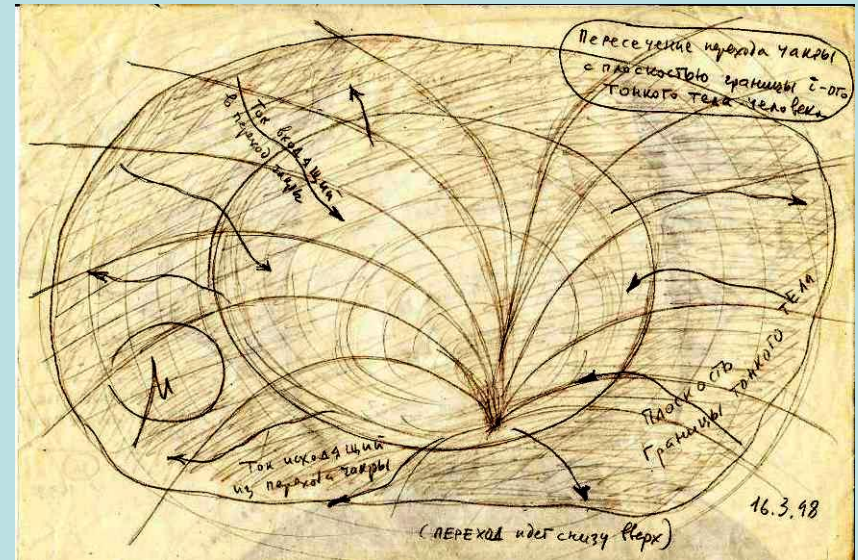 Пересечение перехода чакры
с плоскостью границы i-ого
тонкого тела человека
Ток входящий
в переход чакры
М
Плоскость
Границы тонкого ТЕЛА
Ток исходящий
из перехода чакры
16.3.98
(ПЕРЕХОД идет снизу вверх)